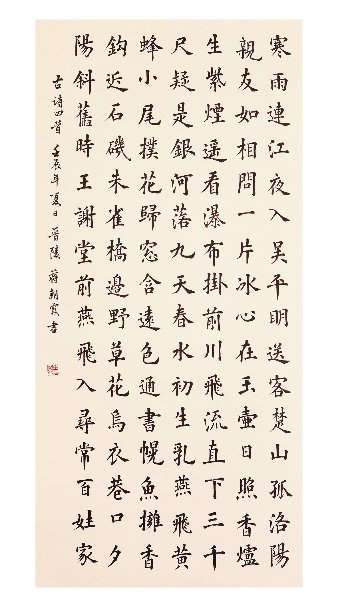 寒雨連江夜入吳平明送客楚山孤洛陽
親友如相問一片冰心在玉壺日照香爐
生紫煙遥看瀑布掛前川飛流直下三千
尺疑是銀河落九天春水初生乳燕飛黃
蜂小尾撲花歸窓含遠色通書幌魚擁香
鈎近石磯朱雀橋邊野草花烏衣巷口夕
陽斜舊時王謝堂前燕飛入尋常百姓家
古詩四首 壬辰年夏日 晋陵 蔣朝霞書